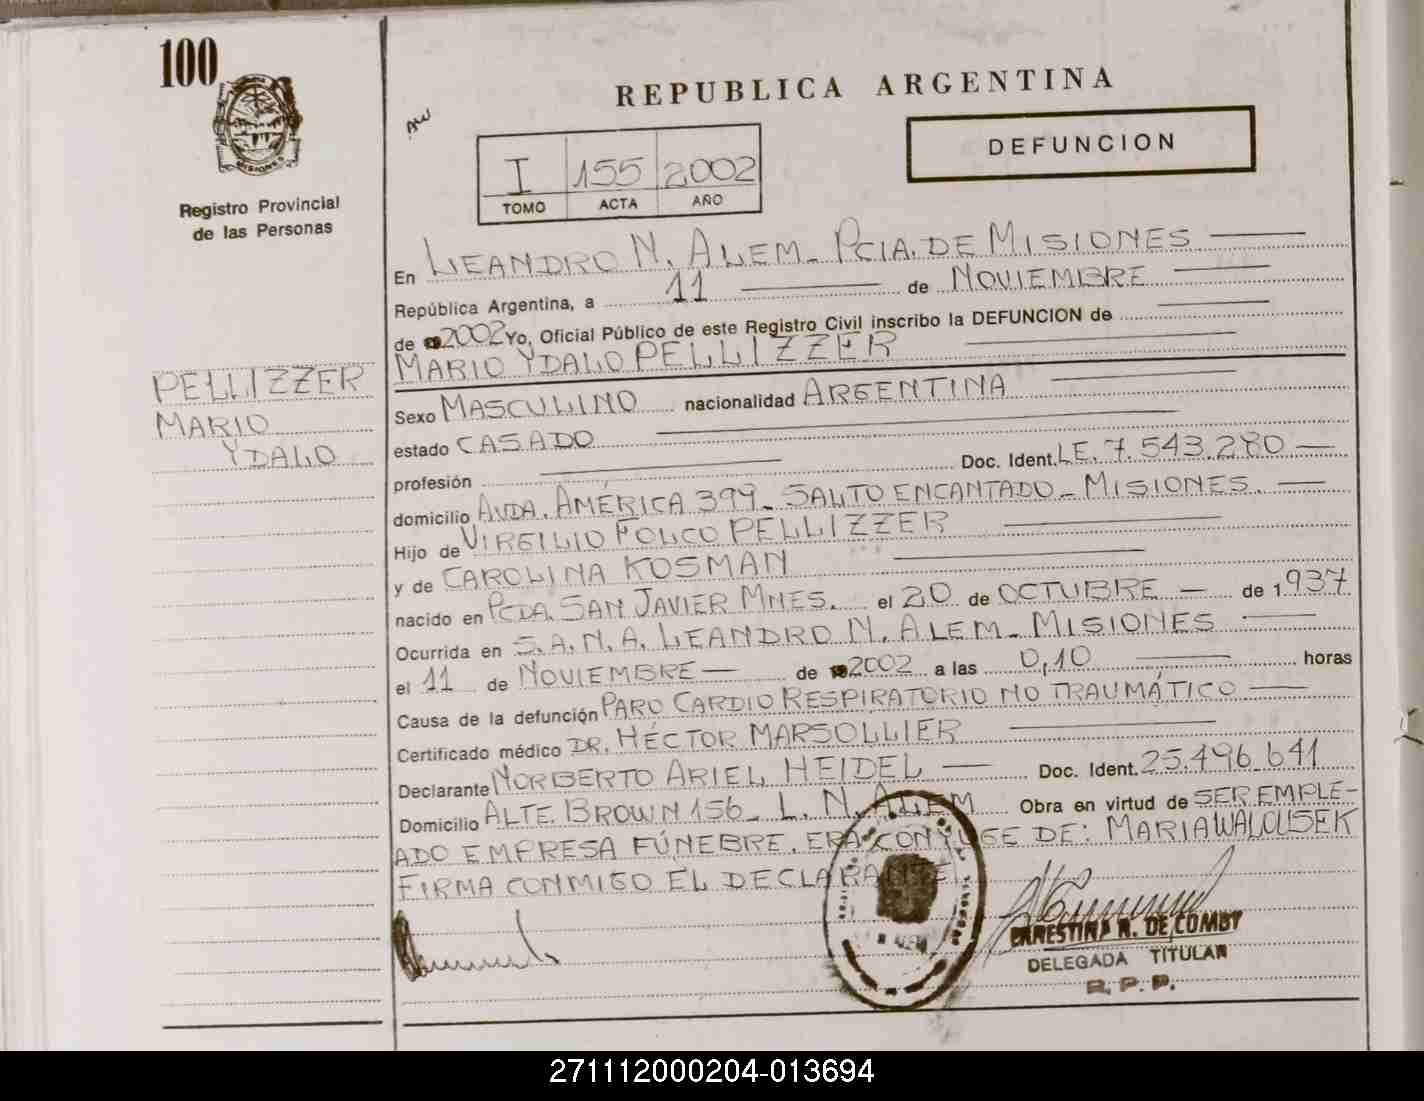 100
MISIONES
Registro Provincial
de las Personas
PELLIZZER
MARIO
YDALO
REPUBLICA ARGENTINA
DEFUNCION
I 155 2002
TOMO ACTA AÑO
En LEANDRO N. ALEM - PCIA. DE MISIONES
República Argentina, a 11 de NOVIEMBRE
de 2002 Yo, Oficial Público de este Registro Civil inscribo la DEFUNCION de
MARIO YDALO PELLIZZER
Sexo MASCULINO nacionalidad ARGENTINA
estado CASADO
profesión Doc. Ident. LE. 7.543.280
domicilio AVDA. AMÉRICA 399 - SALTO ENCANTADO - MISIONES.
Hijo de VIRGILIO FOLCO PELLIZZER
y de CAROLINA KOSMAN
nacido en PCDA. SAN JAVIER MNES. el 20 de OCTUBRE de 1937
Ocurrida en S.A.N.A. LEANDRO N. ALEM - MISIONES
el 11 de NOVIEMBRE de 2002 a las 0,10 horas
Causa de la defunción PARO CARDIO RESPIRATORIO NO TRAUMÁTICO
Certificado médico DR. HÉCTOR MARSOLLIER
Declarante NORBERTO ARIEL HEIDEL Doc. Ident. 25.496.641
Domicilio ALTE. BROWN 156 - L. N. ALEM Obra en virtud de SER EMPLE-
ADO EMPRESA FÚNEBRE. ERA CÓNYUGE DE: MARIA WALOUSEK
FIRMA CONMIGO EL DECLARANTE.
ERNESTINA R. DE COMBY
DELEGADA TITULAR
R.P.P.
271112000204-013694